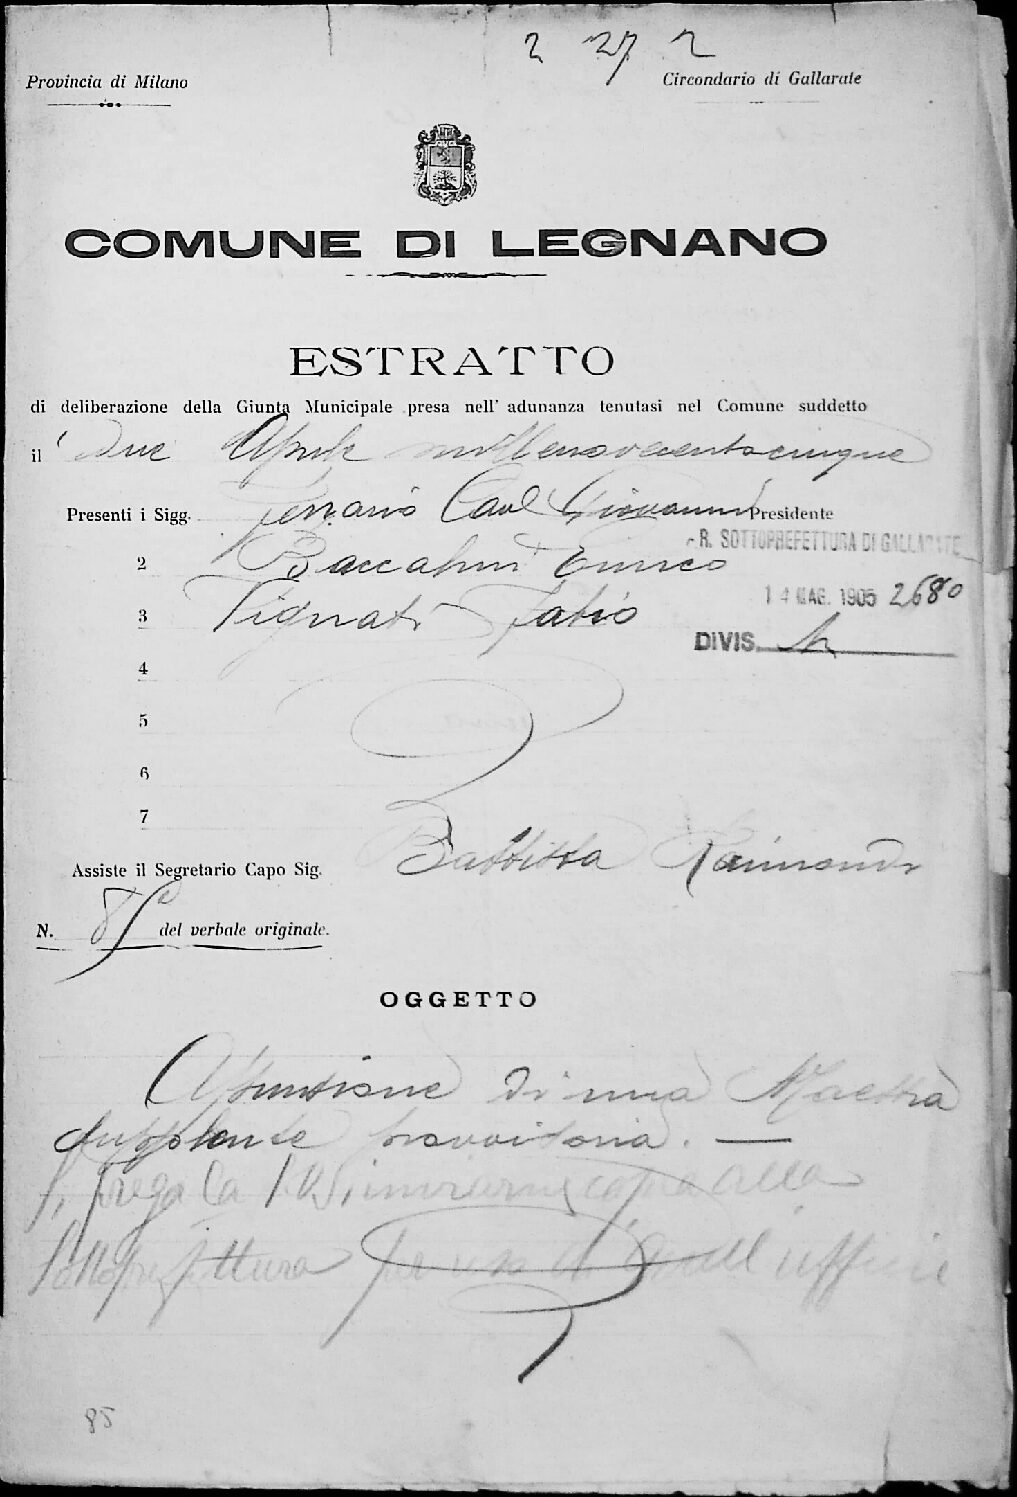 2 27 2
Provincia di Milano
Circondario di Gallarate
COMUNE DI LEGNANO
ESTRATTO
di deliberazione della Giunta Municipale presa nell' adunanza tenutasi nel Comune suddetto
il due Aprile millenovecentocinque
Presenti i Sigg. Ferrario Cav. Giovanni Presidente
R. SOTTOPREFETTURA DI GALLARATE
2 Baccalini Enrico
14 MAG. 1905 2680
3 Vignati Fabio
DIVIS.
4
5
6
7
Assiste il Segretario Capo Sig. Battista Raimondi
N. 85 del verbale originale.
OGGETTO
Assunzione di una Maestra
supplente provvisoria. —
Si prega la S.V. inviarne copia alla
Sottoprefettura per uso di quell'ufficio
85